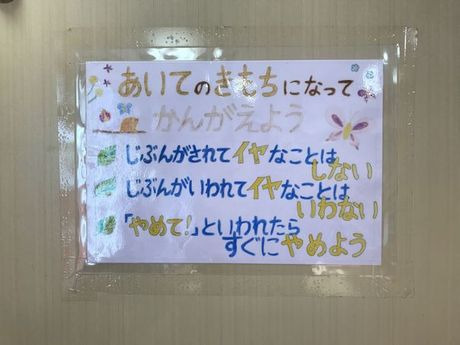 あいてのきもちになって
かんがえよう
じぶんがされてイヤなことは
しない
じぶんがいわれてイヤなことは
いわない
「やめて!」といわれたら
すぐにやめよう